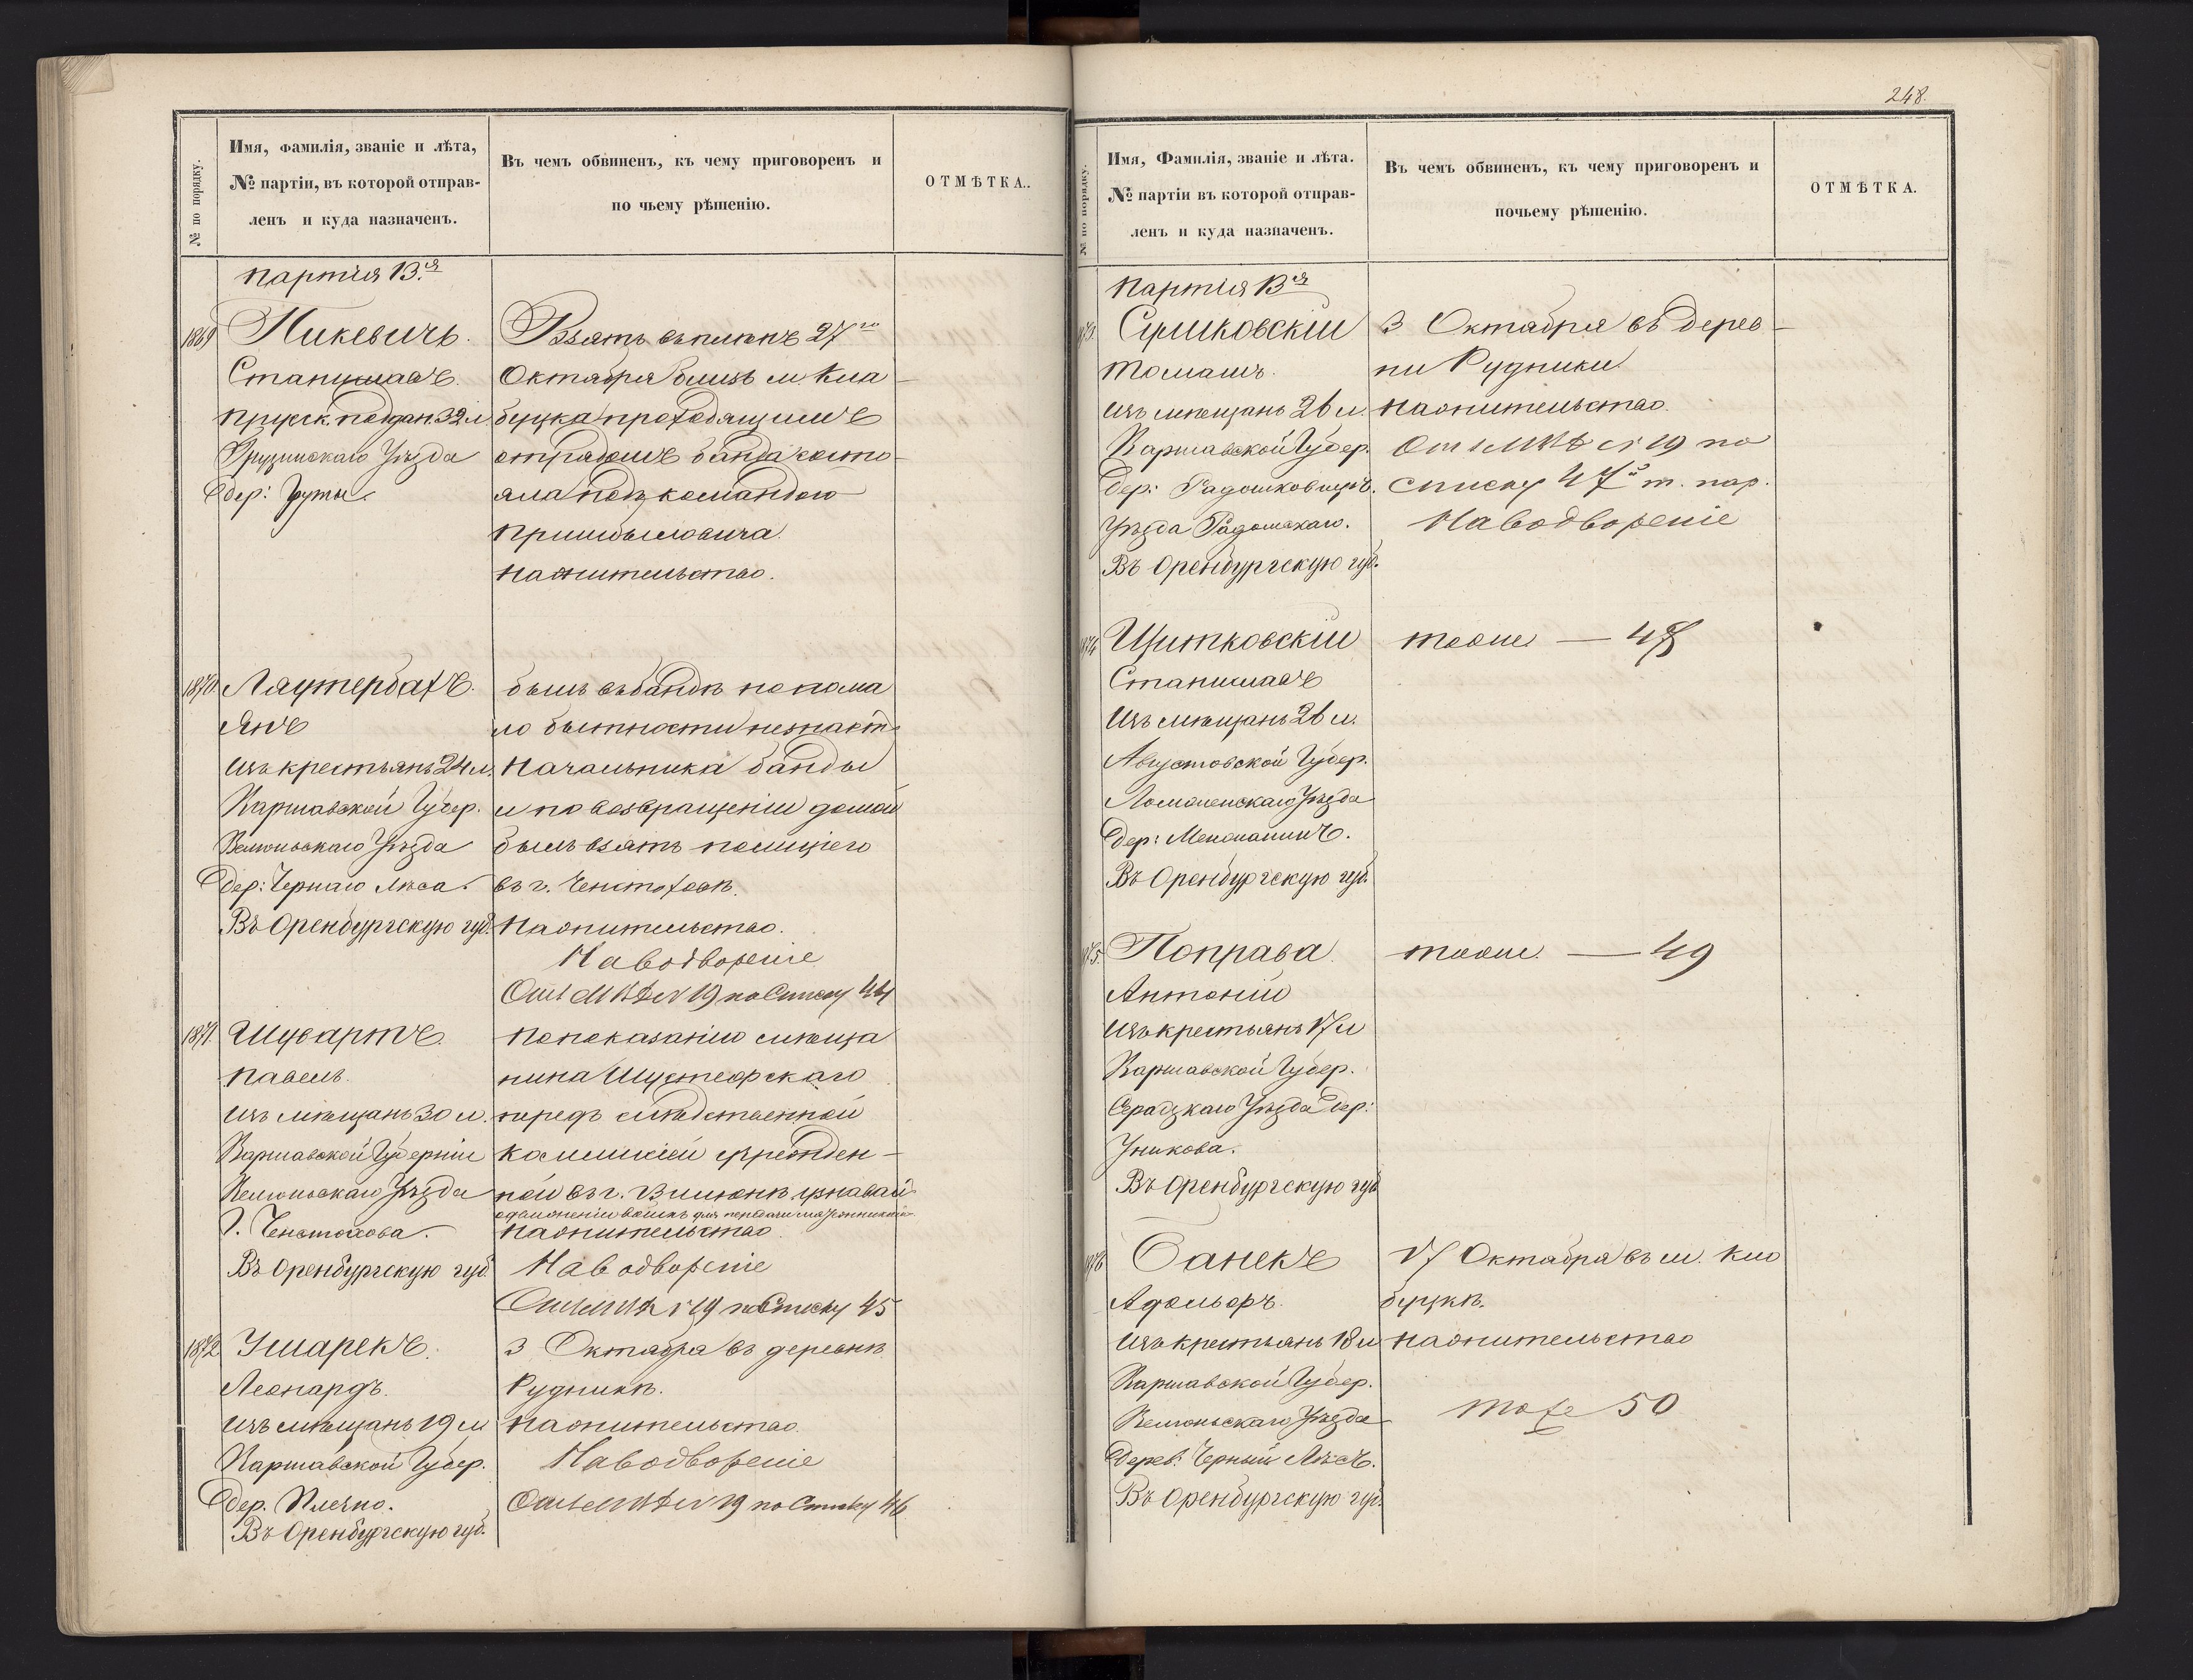 № по порядку.
Имя, фамилія, званіе и лѣта,
№ партіи, въ которой отправ-
ленъ и куда назначенъ.
Въ чемъ обвиненъ, къ чему приговоренъ и
по чьему рѣшенію.
ОТМѢТКА..
партія 13.я
1869
Пикевичъ.
Станиславъ.
Прусск. поддан. 32 л.
уѣзда
дер:
Взятъ въ плѣнъ 27го
Октября близь м. Кло-
буцка проходящимъ
отрядомъ банда состо-
яла подъ командою
на жительство.
1870.
Лаутербахъ.
Янъ
изъ крестьянъ 24 л.
Варшавской Губер.
Велюньскаго Уѣзда
дер: Чернаго Лѣса.
Въ Оренбургскую губ.
былъ въ бандѣ но по ма
ло бытности незнаетъ
начальника банды
и по возвращеніи домой
былъ взятъ полиціею
въ г. Ченстоховѣ.
На жительство.
На водвореніе
19 по Списку 44
1871.
Шувартъ.
Павелъ.
изъ мѣщанъ 30 л.
Варшавской Губерніи
Велюньскаго Уѣзда
г. Ченстохова.
Въ Оренбургскую губ.
по показанію мѣща
нина
передъ слѣдственной
комисіей учрежден-
ной въ г. Вилюнѣ
на жительство
На водвореніе
19 по Списку 45
1872
Умарекъ.
Леонардъ.
изъ мѣщанъ 19 л
Варшавской Губер.
дер.
Въ Оренбургскую губ.
3 Октября въ деревнѣ
Рудникѣ.
на жительство.
На водвореніе
19 по Списку 46
248.
№ по порядку.
Имя, Фамилія, званіе и лѣта.
№ партіи въ которой отправ-
ленъ и куда назначенъ.
Въ чемъ обвиненъ, къ чему приговоренъ и
почьему рѣшенію.
ОТМѢТКА.
Партія 13я
1873.
Суликовскій
Томашъ.
изъ мѣщанъ 26 л.
Варшавской Губер.
дер:
Уѣзда Радомскаго.
Въ Оренбургскую губ.
3 Октября въ дерев-
ни Рудники
на жительство.
19 по
списку 47 т. пар.
На водвореніе
1874
Щитковскій
Станиславъ
изъ мѣщанъ 26 л.
Августовской Губер.
Ломженскаго Уѣзда
дер:
Въ Оренбургскую губ.
тоже — 48
1875.
Поправа.
Антоній
изъ крестьянъ 17 л
Варшавской Губер.
Серадзкаго Уѣзда дер:
Уникова.
Въ Оренбургскую губ
тоже. — 49
1876
Банекъ
Адольфъ.
изъ крестьянъ 18 л
Варшавской Губер.
Велюньскаго Уѣзда
Дерев: Черный Лѣсъ.
Въ Оренбургскую губ.
17 Октября въ м. Кло
буцкѣ.
на жительство
тоже 50